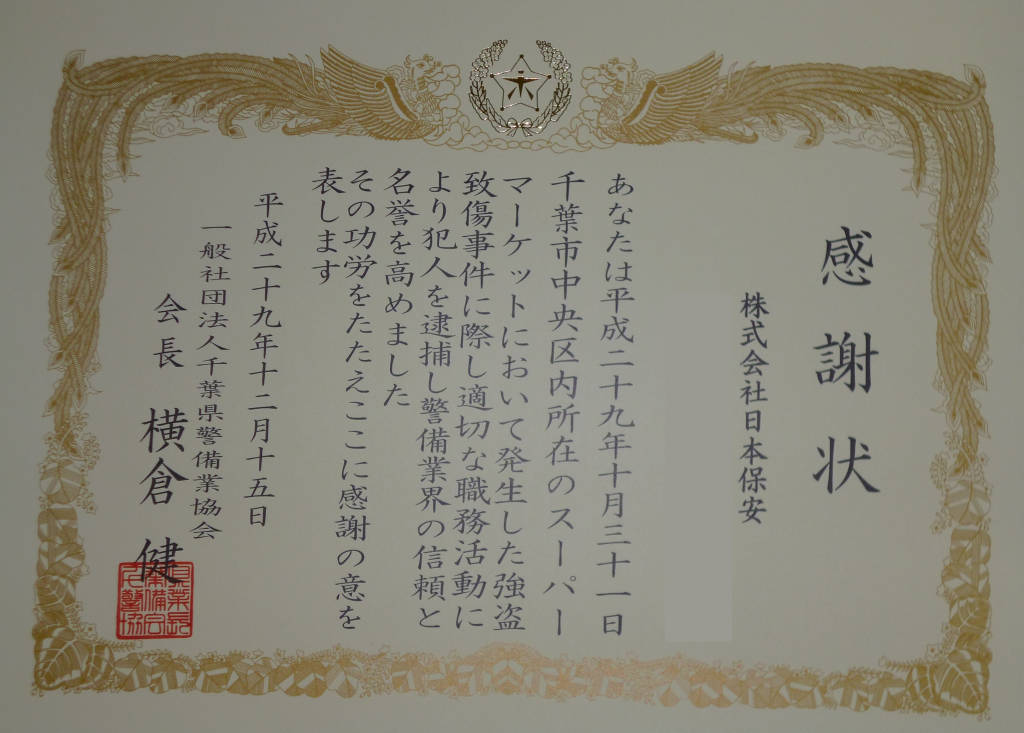 感謝状
株式会社日本保安
あなたは平成二十九年十月三十一日
千葉市中央区内所在のスーパー
マーケットにおいて発生した強盗
致傷事件に際し適切な職務活動に
より犯人を逮捕し警備業界の信頼と
名誉を高めました
その功労をたたえここに感謝の意を
表します
平成二十九年十二月十五日
一般社団法人千葉県警備業協会
会長 横倉健